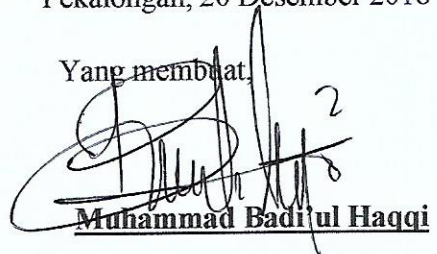 Pekalongan, 20 Desember 2018
Yang membuat,
Muhammad Badi'ul Haqqi